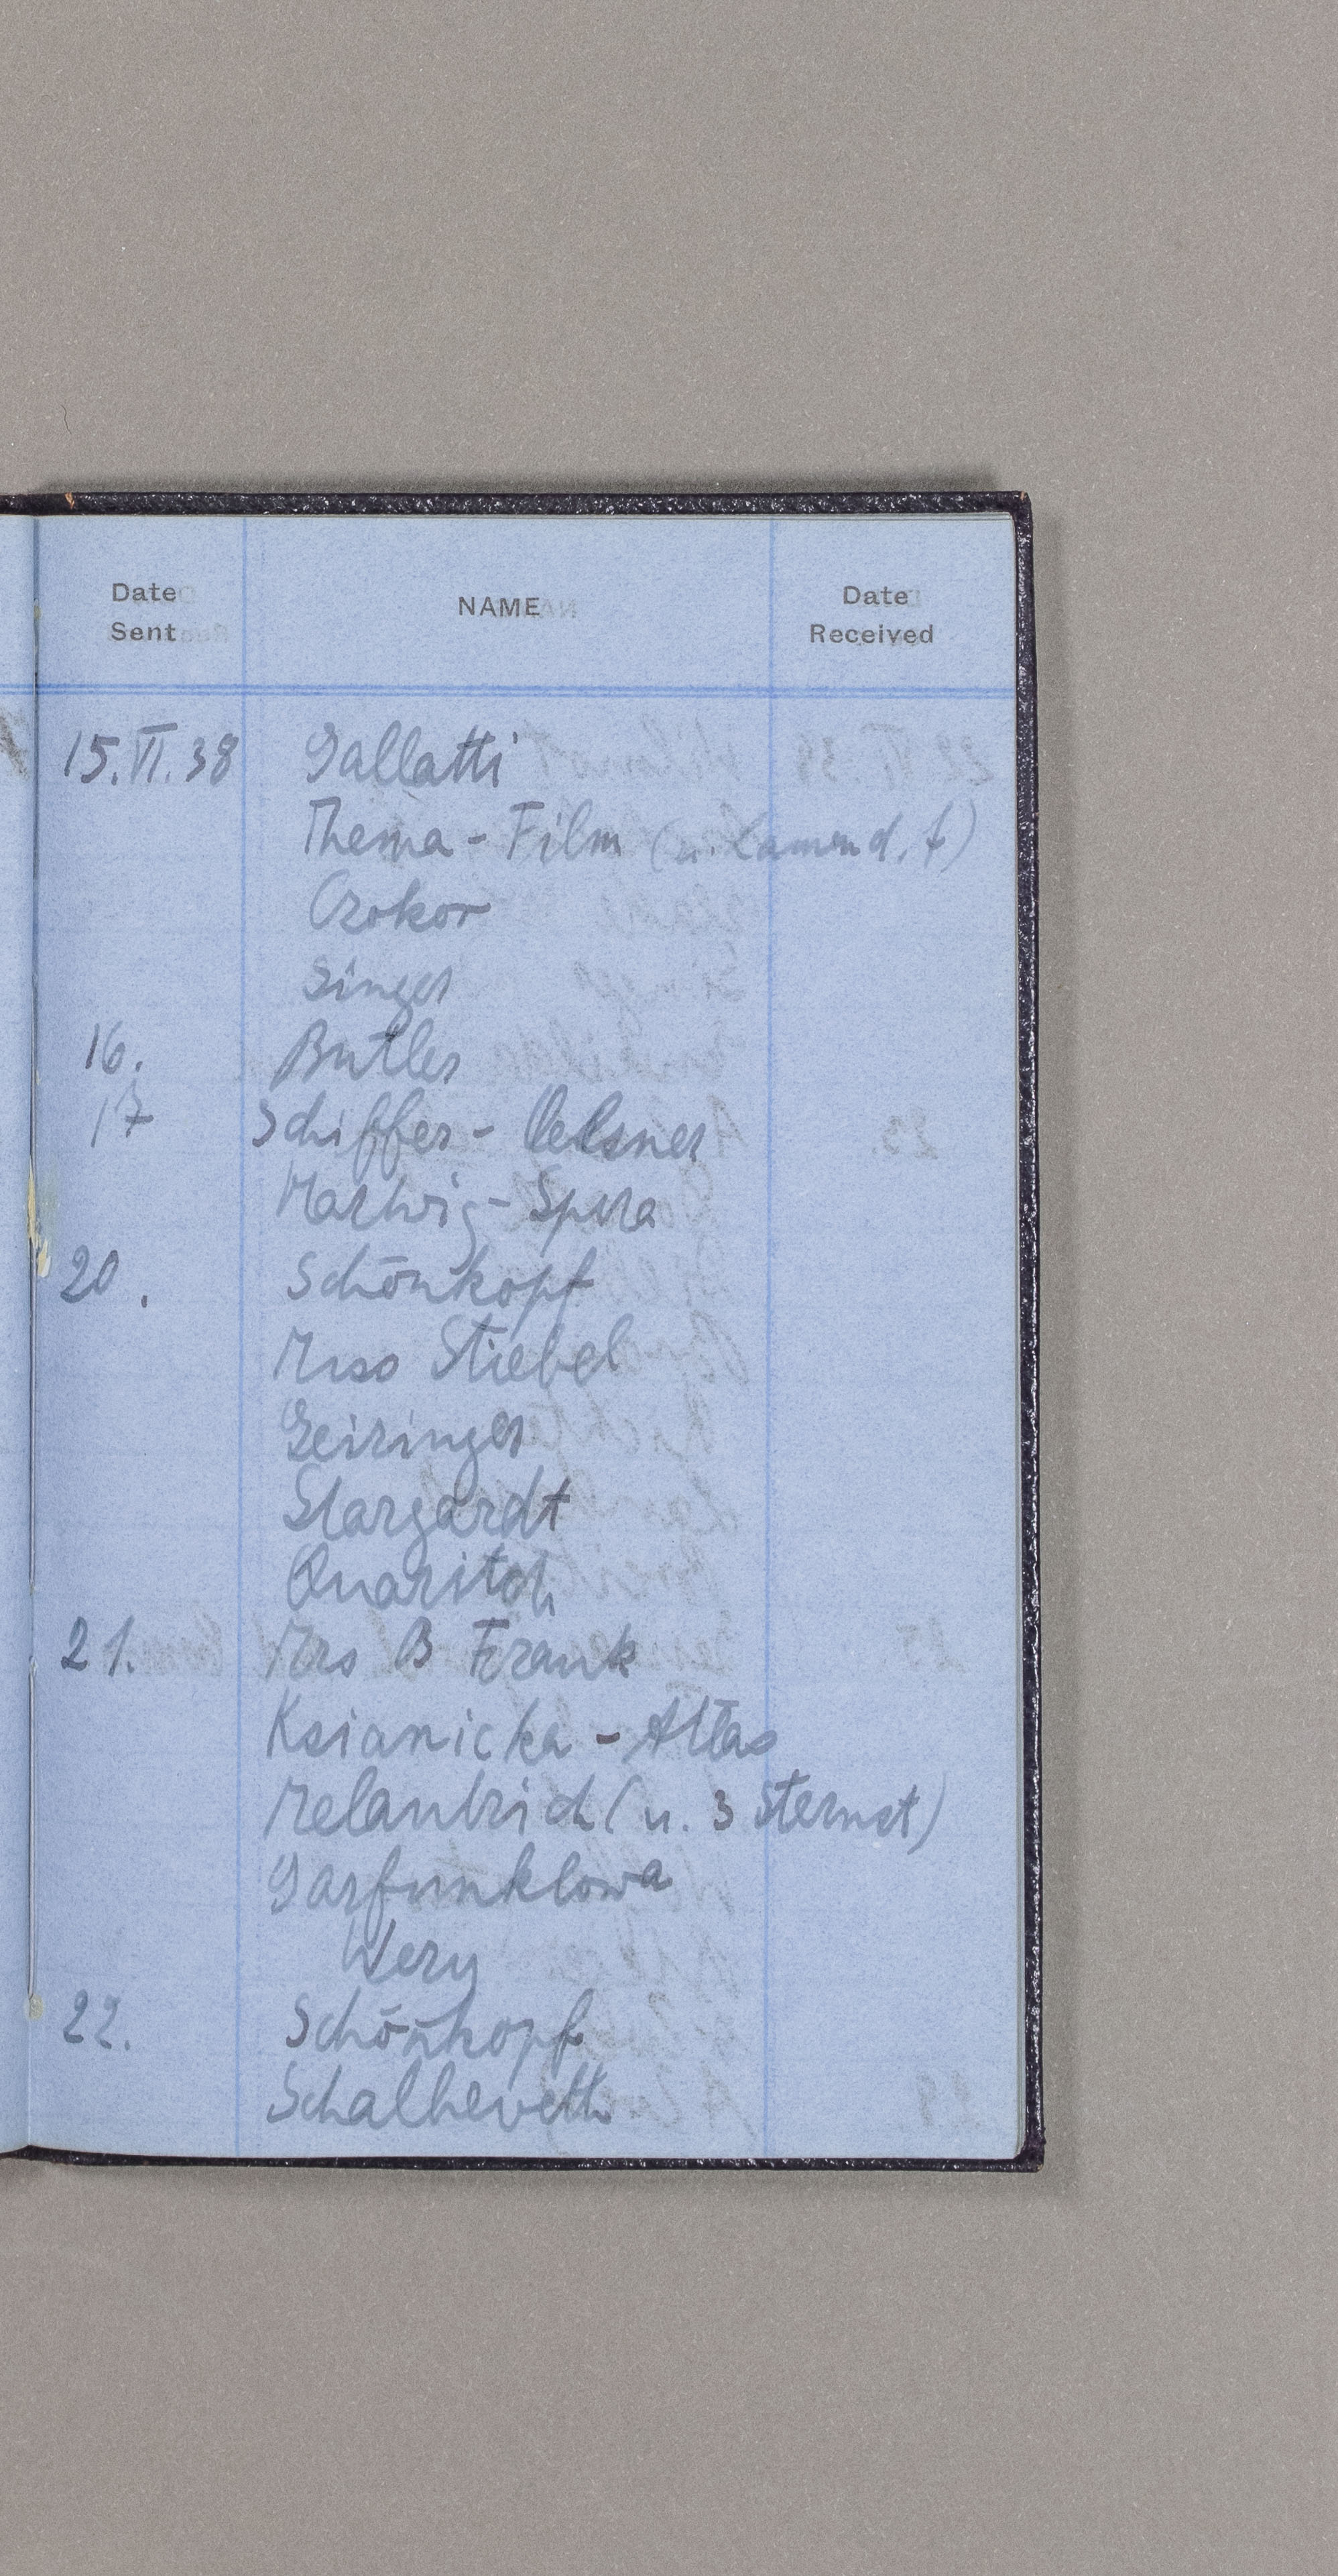 Date Sent NAME Date Received
15.VI.38 Gallatti
Thema - Film (u. d. f)
Czokor
Singer
16. Butler
17 Schiffer - Oelsner
Hartwig - Spira
20. Schönkopf
Mrs Stiebel
Geiringer
Stargardt
Quaritch
21. Mrs B Frank
Ksianicka - Atlas
Melantrich (u. 3 Sternst)
Garfunklowa
Wery
22. Schönkopf
Schalheveth